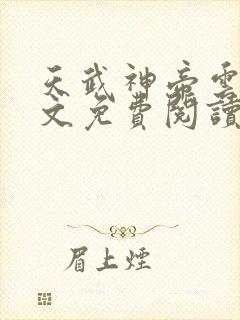 天武神帝雲
文免費閱讀
眉上煙